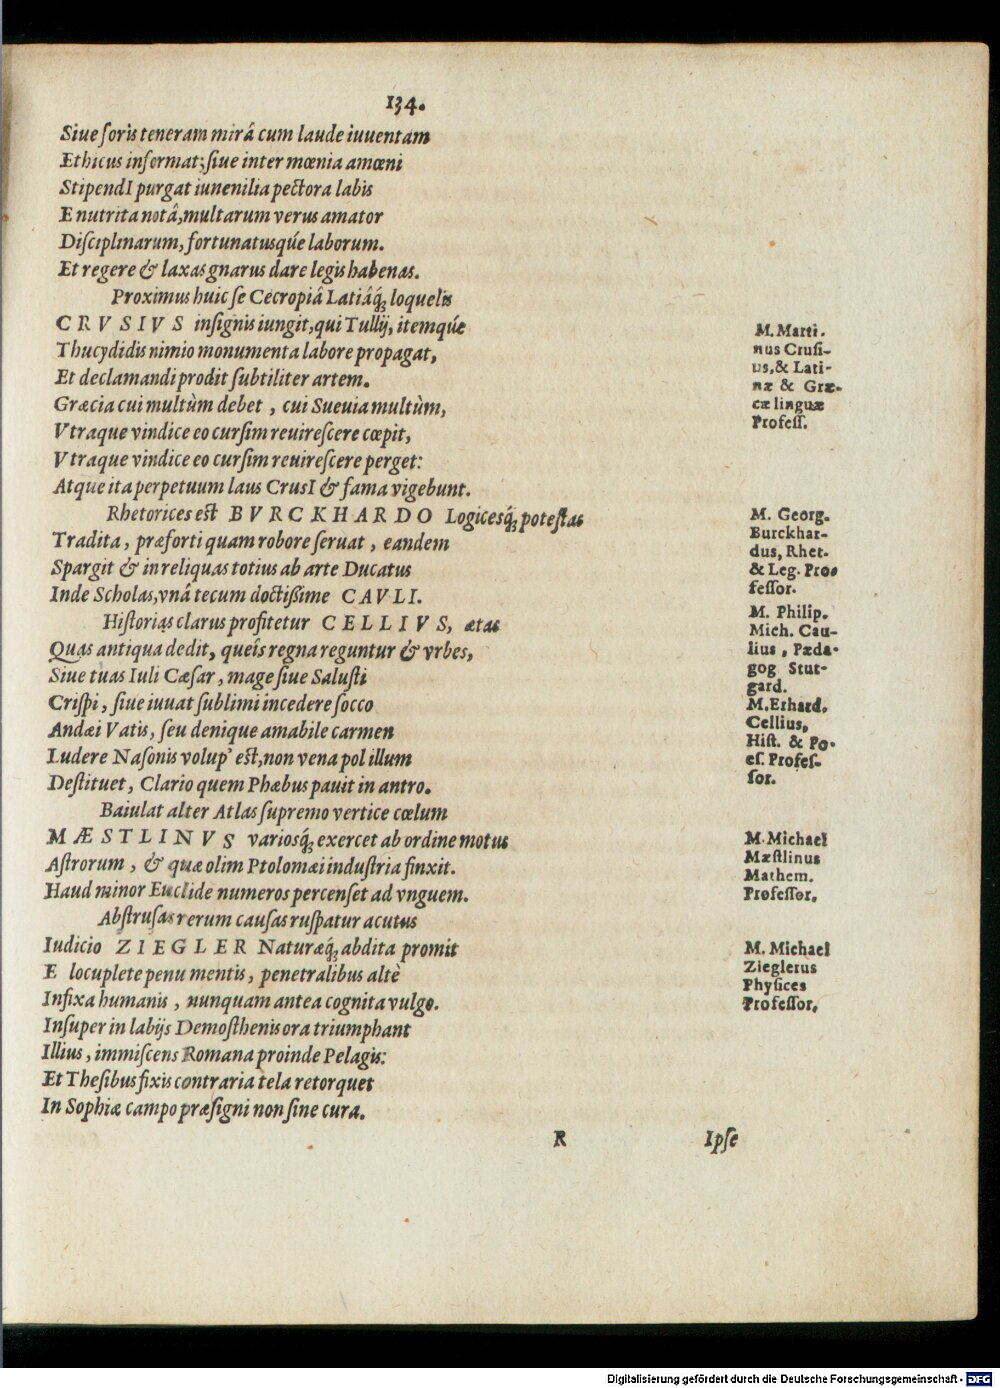 134.
Siue foris teneram mirâ cum laude iuuentam
Ethicus informat; siue inter mœnia amœni
StipendI purgat iunenilia pectora labis
E nutrita notâ, multarum verus amator
Disciplinarum, fortunatusqúe laborum.
Et regere & laxas gnarus dare legis habenas.
Proximus huic se Cecropiâ Latiâq́; loquelis
CRVSIVS insignis iungit, qui Tullij, itemqúe
Thucydidis nimio monumenta labore propagat,
Et declamandi prodit subtiliter artem.
Græcia cui multùm debet, cui Sueuia multùm,
Vtraque vindice eo cursim reuirescere cœpit,
Vtraque vindice eo cursim reuirescere perget:
Atque ita perpetuum laus CrusI & fama vigebunt.
M. Marti-
nus Crusi-
us, & Lati-
næ & Græ-
cæ linguæ
Profess.
Rhetorices est BVRCKHARDO Logicesq́; potestas
Tradita, præforti quam robore seruat, eandem
Spargit & in reliquas totius ab arte Ducatus
Inde Scholas, vnâ tecum doctißime CAVLI.
M. Georg.
Burckhar-
dus, Rhet.
& Leg. Pro-
fessor.
Historias clarus profitetur CELLIVS, ætas
Quas antiqua dedit, queîs regna reguntur & vrbes,
Siue tuas Iuli Cæsar, mage siue Salusti
Crispi, siue iuuat sublimi incedere socco
Andæi Vatis, seu denique amabile carmen
Ludere Nasonis volup' est, non vena pol illum
Destituet, Clario quem Phæbus pauit in antro.
M. Philip.
Mich. Cau-
lius, Pæda-
gog Stut-
gard.
M. Erhard.
Cellius,
Hist. & Po-
es. Profes-
sor.
Baiulat alter Atlas supremo vertice cœlum
MÆSTLINVS variosq́; exercet ab ordine motus
Astrorum, & quæ olim Ptolomæi industria finxit.
Haud minor Euclide numeros percenset ad vnguem.
M. Michael
Mæstlinus
Mathem.
Professor.
Abstrusas rerum causas ruspatur acutus
Iudicio ZIEGLER Naturæq́; abdita promit
E locuplete penu mentis, penetralibus altè
Infixa humanis, nunquam antea cognita vulgo.
Insuper in labijs Demosthenis ora triumphant
Illius, immiscens Romana proinde Pelagis:
Et Thesibus fixis contraria tela retorquet
In Sophiæ campo præsigni non sine cura.
M. Michael
Zieglerus
Physices
Professor.
R Ipse
Digitalisierung gefördert durch die Deutsche Forschungsgemeinschaft - DFG